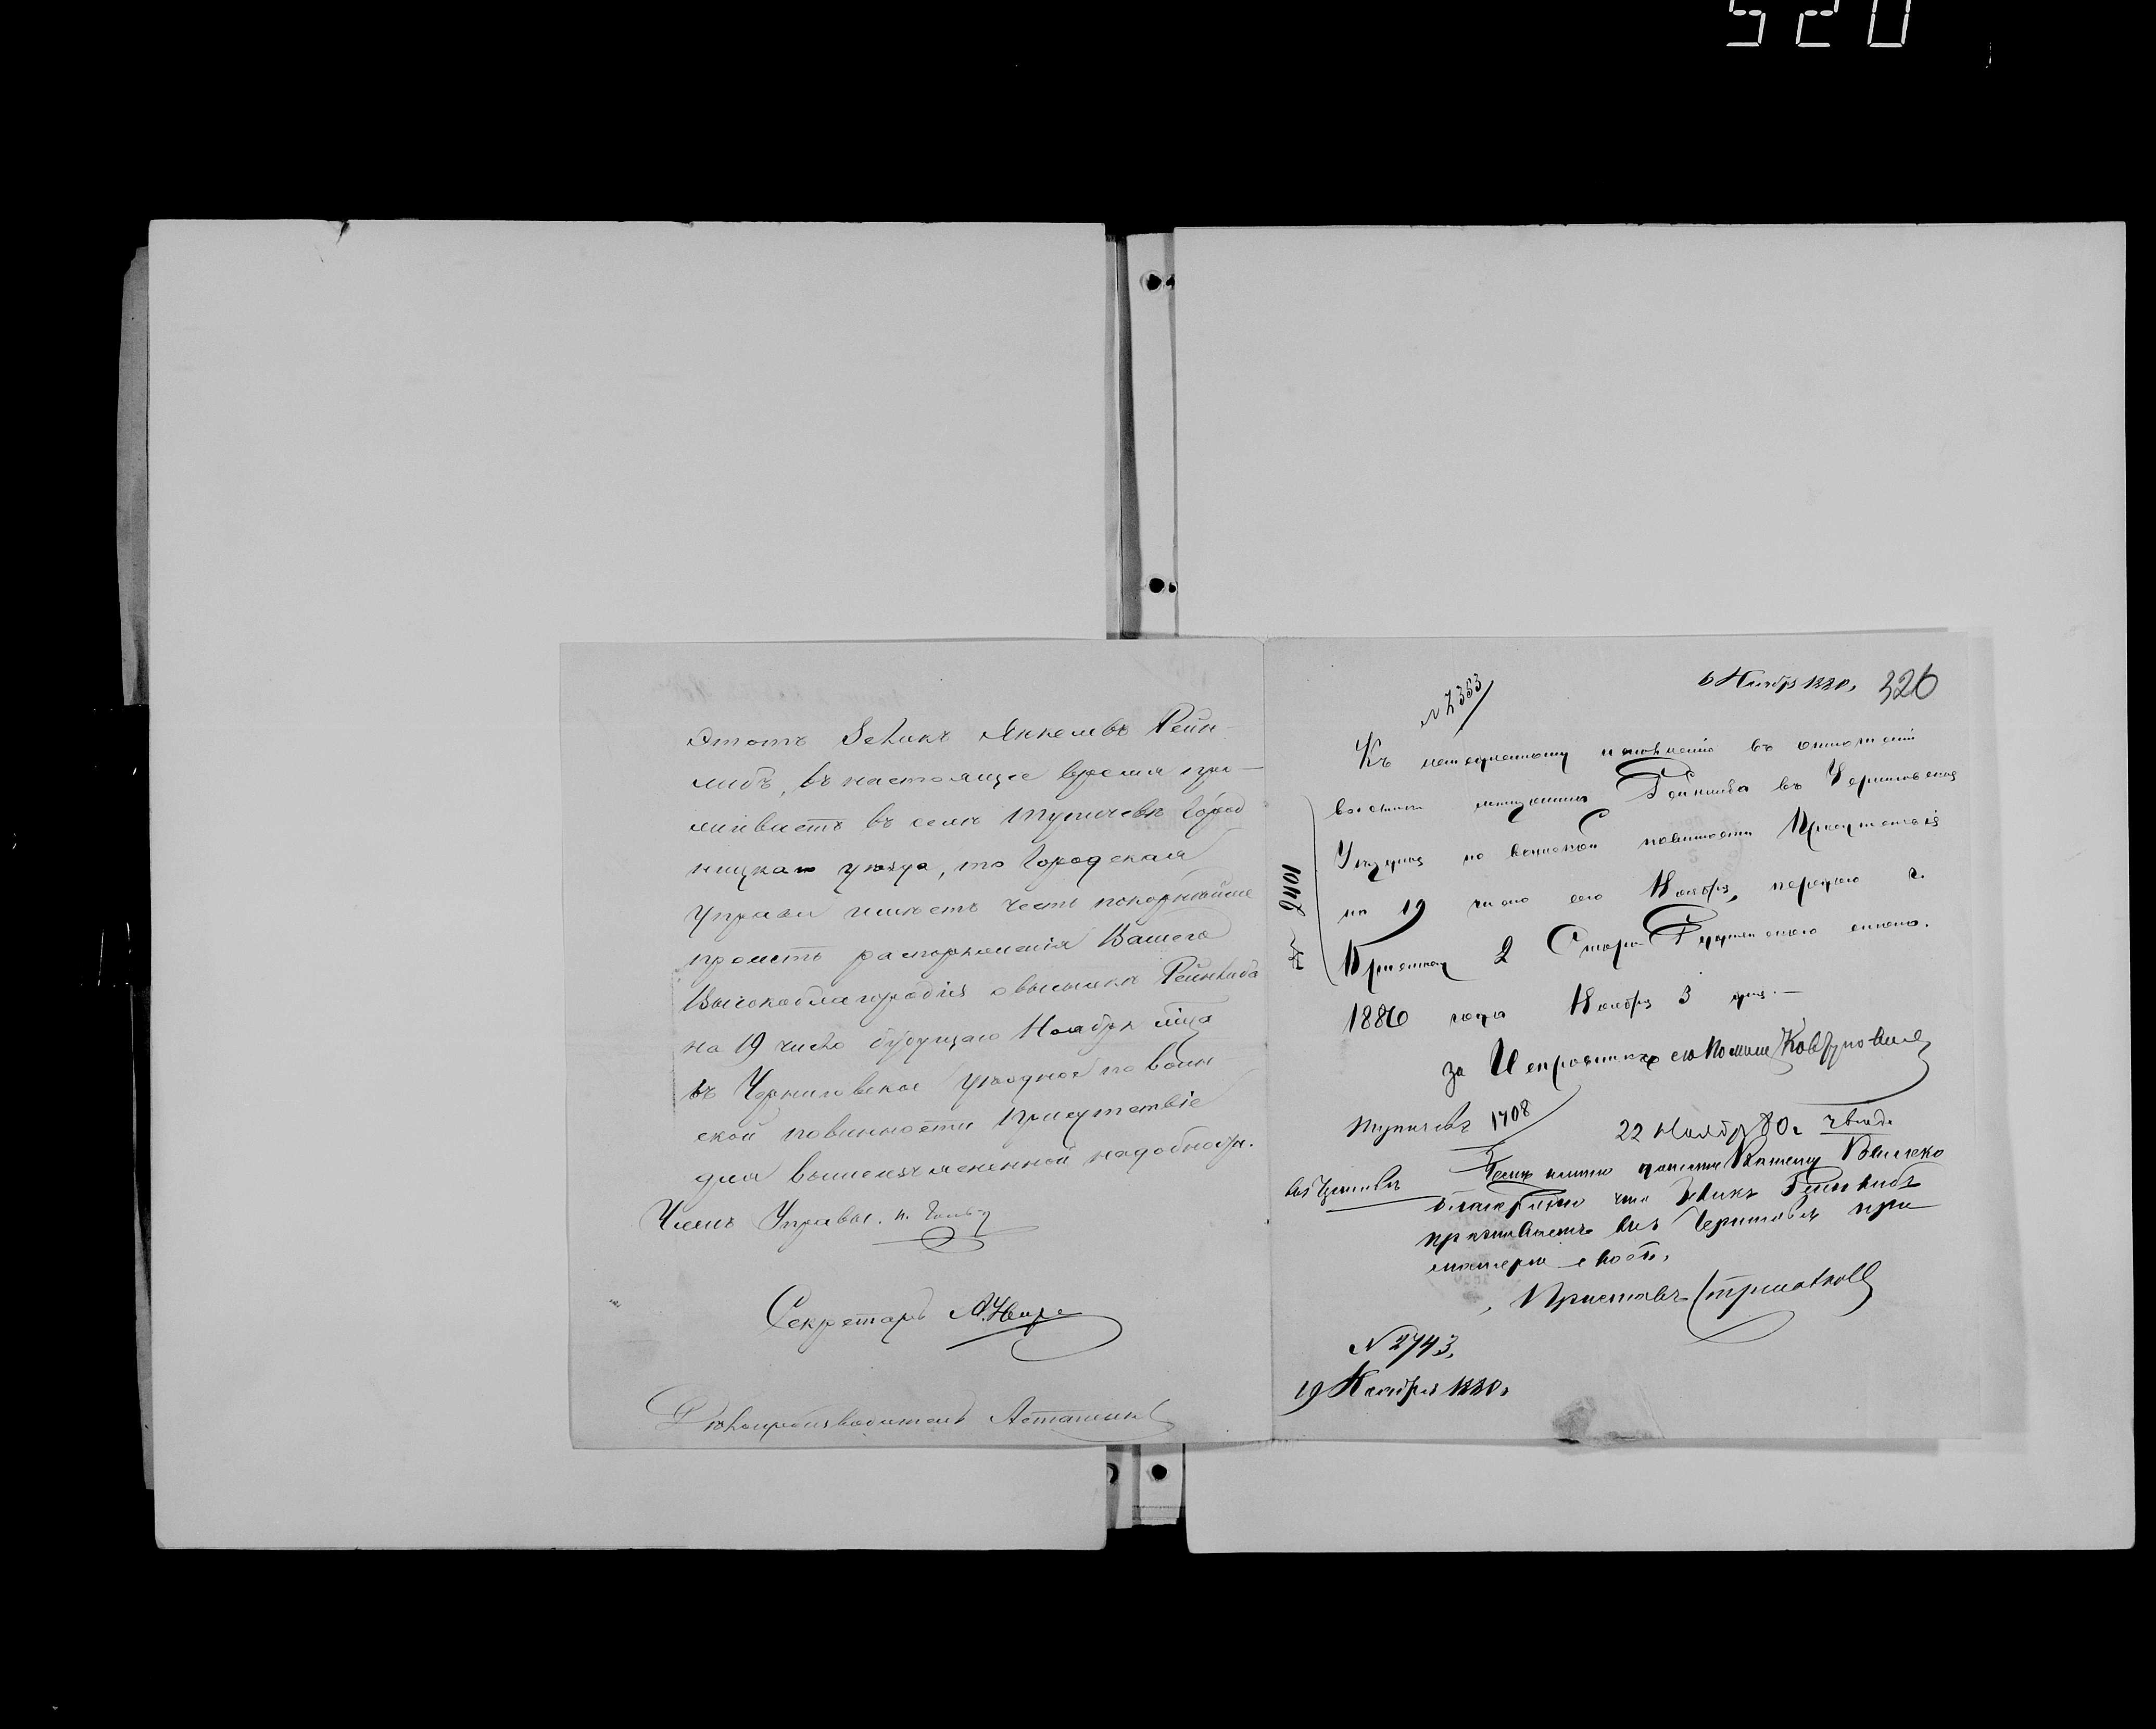 520
этотъ Зеликъ Янкелевъ Рейн-
лидъ, въ настоящее время про-
живаетъ въ селѣ Тупичевѣ Город
ницкаго уѣзда, то Городская
Управа имѣетъ честь покорнѣйше
просить распоряженія Вашего
Высокоблагородія о высылкѣ Рейнлида
на 19 число будущаго Ноября мѣца
въ Черниговское Уѣздное по воин
ской повинности Присутствіе
для вышеизъясненной надобности.
Членъ Управы.
Секретарь
Дѣлопроизводитель Асташин
6 Ноября 1880. 326
N 2353
Къ немедленному исполненію въ отношеніи
высылки мѣщанина Рейнлида въ Черниговское
Уѣздное по воинской повинности Присутствіе
на 19 число сего Ноября, передаю г.
Приставу 2 Стана
1880 года Ноября 3 дня.
за Исправника
1046
Тупичевъ 1708
22 Ноября 80 г.
Честь имѣю донести Вашему Высоко
благородію что Зеликъ Рейнлидъ
проживаетъ въ г Черниговѣ при
матери своей.
Приставъ
N 2743.
19 Ноября 1880.